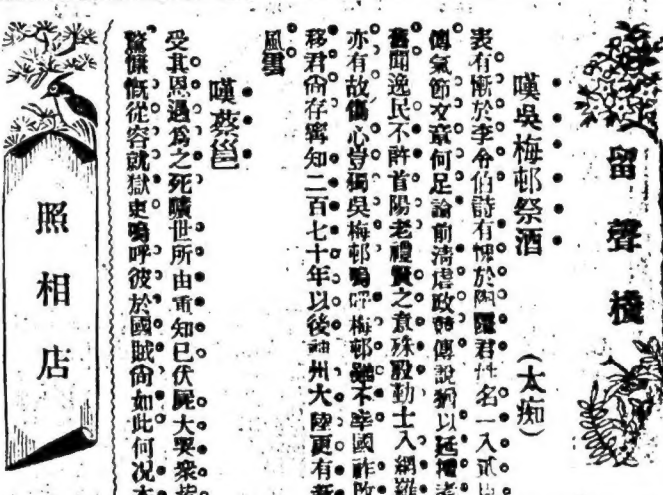 留聲機
嘆吳梅邨祭酒 (太痴)
表有慚於李令伯詩有愧於陶淵君姓名一入貳臣
傳氣節文章何足論前清虐政 傳說猶以延禮
舊聞逸民不許首陽老禮賢之意殊殷勤士入網羅
亦有故傷心豈獨吳梅邨嗚呼梅邨雖不幸國祚改
移君尙存寧知二百七十年以後神州大陸更有新
風雲
嘆蔡邕
受其恩遇爲之死曠世所由重知已伏屍大哭衆皆
驚慷慨從容就獄吏嗚呼彼於國賊尙如此何况
照相店